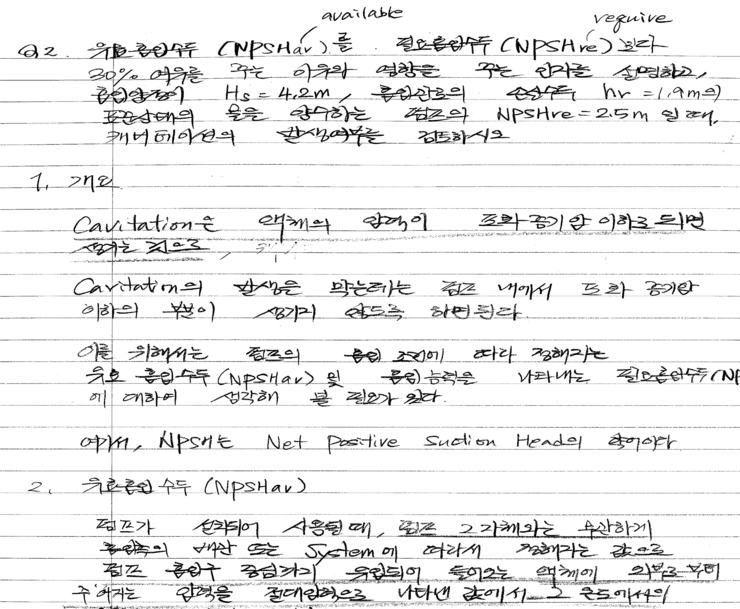 available
require
Q2. 유효흡입수두 (NPSHav)를 필요흡입수두 (NPSHre) 보다
30% 여유를 주는 이유와 영향을 주는 인자를 설명하고,
흡입양정이 Hs = 4.2m, 흡입관로의 손실수두 hr = 1.9m의
표준상태의 물을 양수하는 펌프의 NPSHre = 2.5m 일 때,
캐비테이션의 발생여부를 검토하시오
1. 개요
Cavitation은 액체의 압력이 포화증기압 이하로 되면
생기는 것으로,
Cavitation의 발생을 막는데는 펌프 내에서 포화 증기압
이하의 부분이 생기지 않도록 하면 된다.
이를 위해서는 펌프의 흡입 조건에 따라 정해지는
유효 흡입수두 (NPSHav) 및 흡입능력을 나타내는 필요흡입수두 (NP
에 대하여 생각해 볼 필요가 있다.
여기서, NPSH는 Net Positive Suction Head의 약어이다
2. 유효흡입수두 (NPSHav)
펌프가 설치되어 사용될 때, 펌프 그 자체와는 무관하게
흡입측의 배관 또는 System에 따라서 정해지는 값으로
펌프 흡입구 중심까지 유입되어 들어오는 액체에 외부로부터
주어지는 압력을 절대압력으로 나타낸 값에서 그 온도에서의